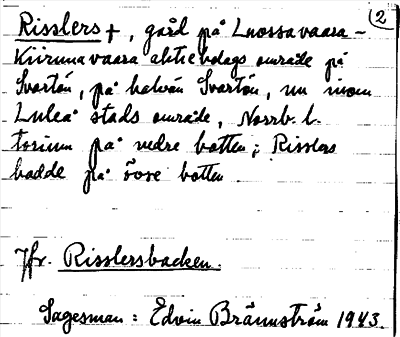 2
Risslers +, gård på Luossavaara-
Kiirunavaara aktiebolags område på
Svartön, på halvön Svartön, nu inom
Luleå stads område, Norrb. l.
på nedre botten; Risslers
hadde på övre botten.
Jfr. Risslersbacken.
Sagesman: Edvin Brännström 1943.